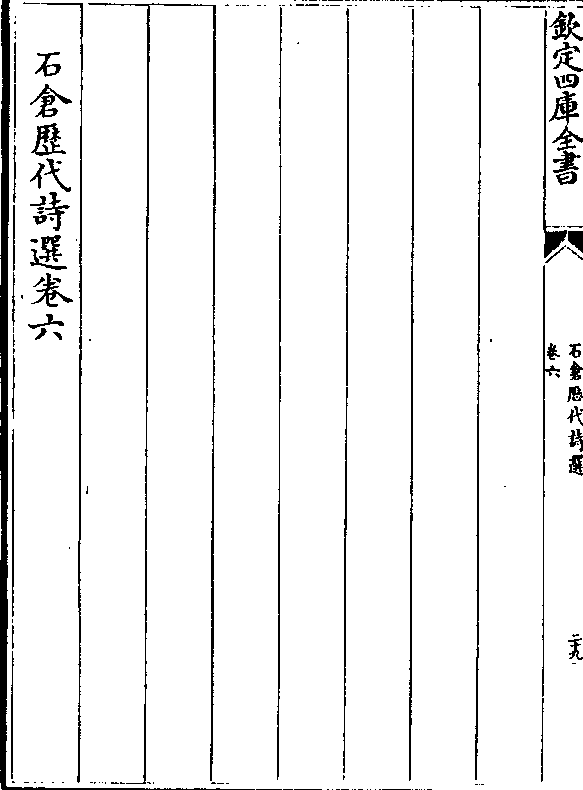 欽定四庫全書
石倉歷代詩選
卷六
二十九
石倉歷代詩選卷六